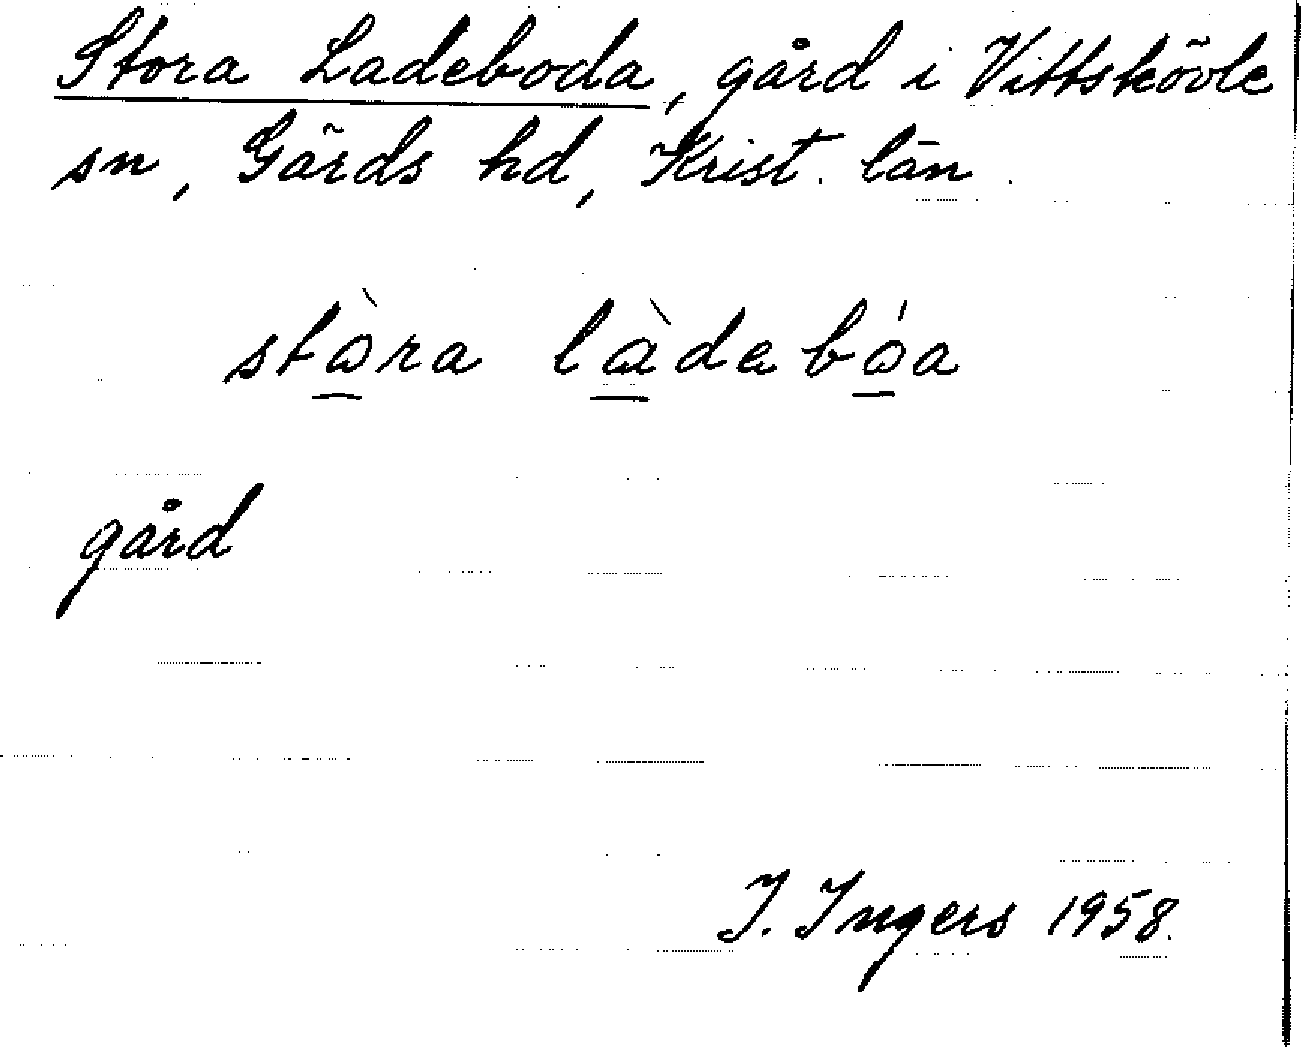 Stora Ladeboda, gård i Vittskövle
sn, Gärds hd, Krist. län.
stòra làdebóa
gård
I. Ingers 1958.